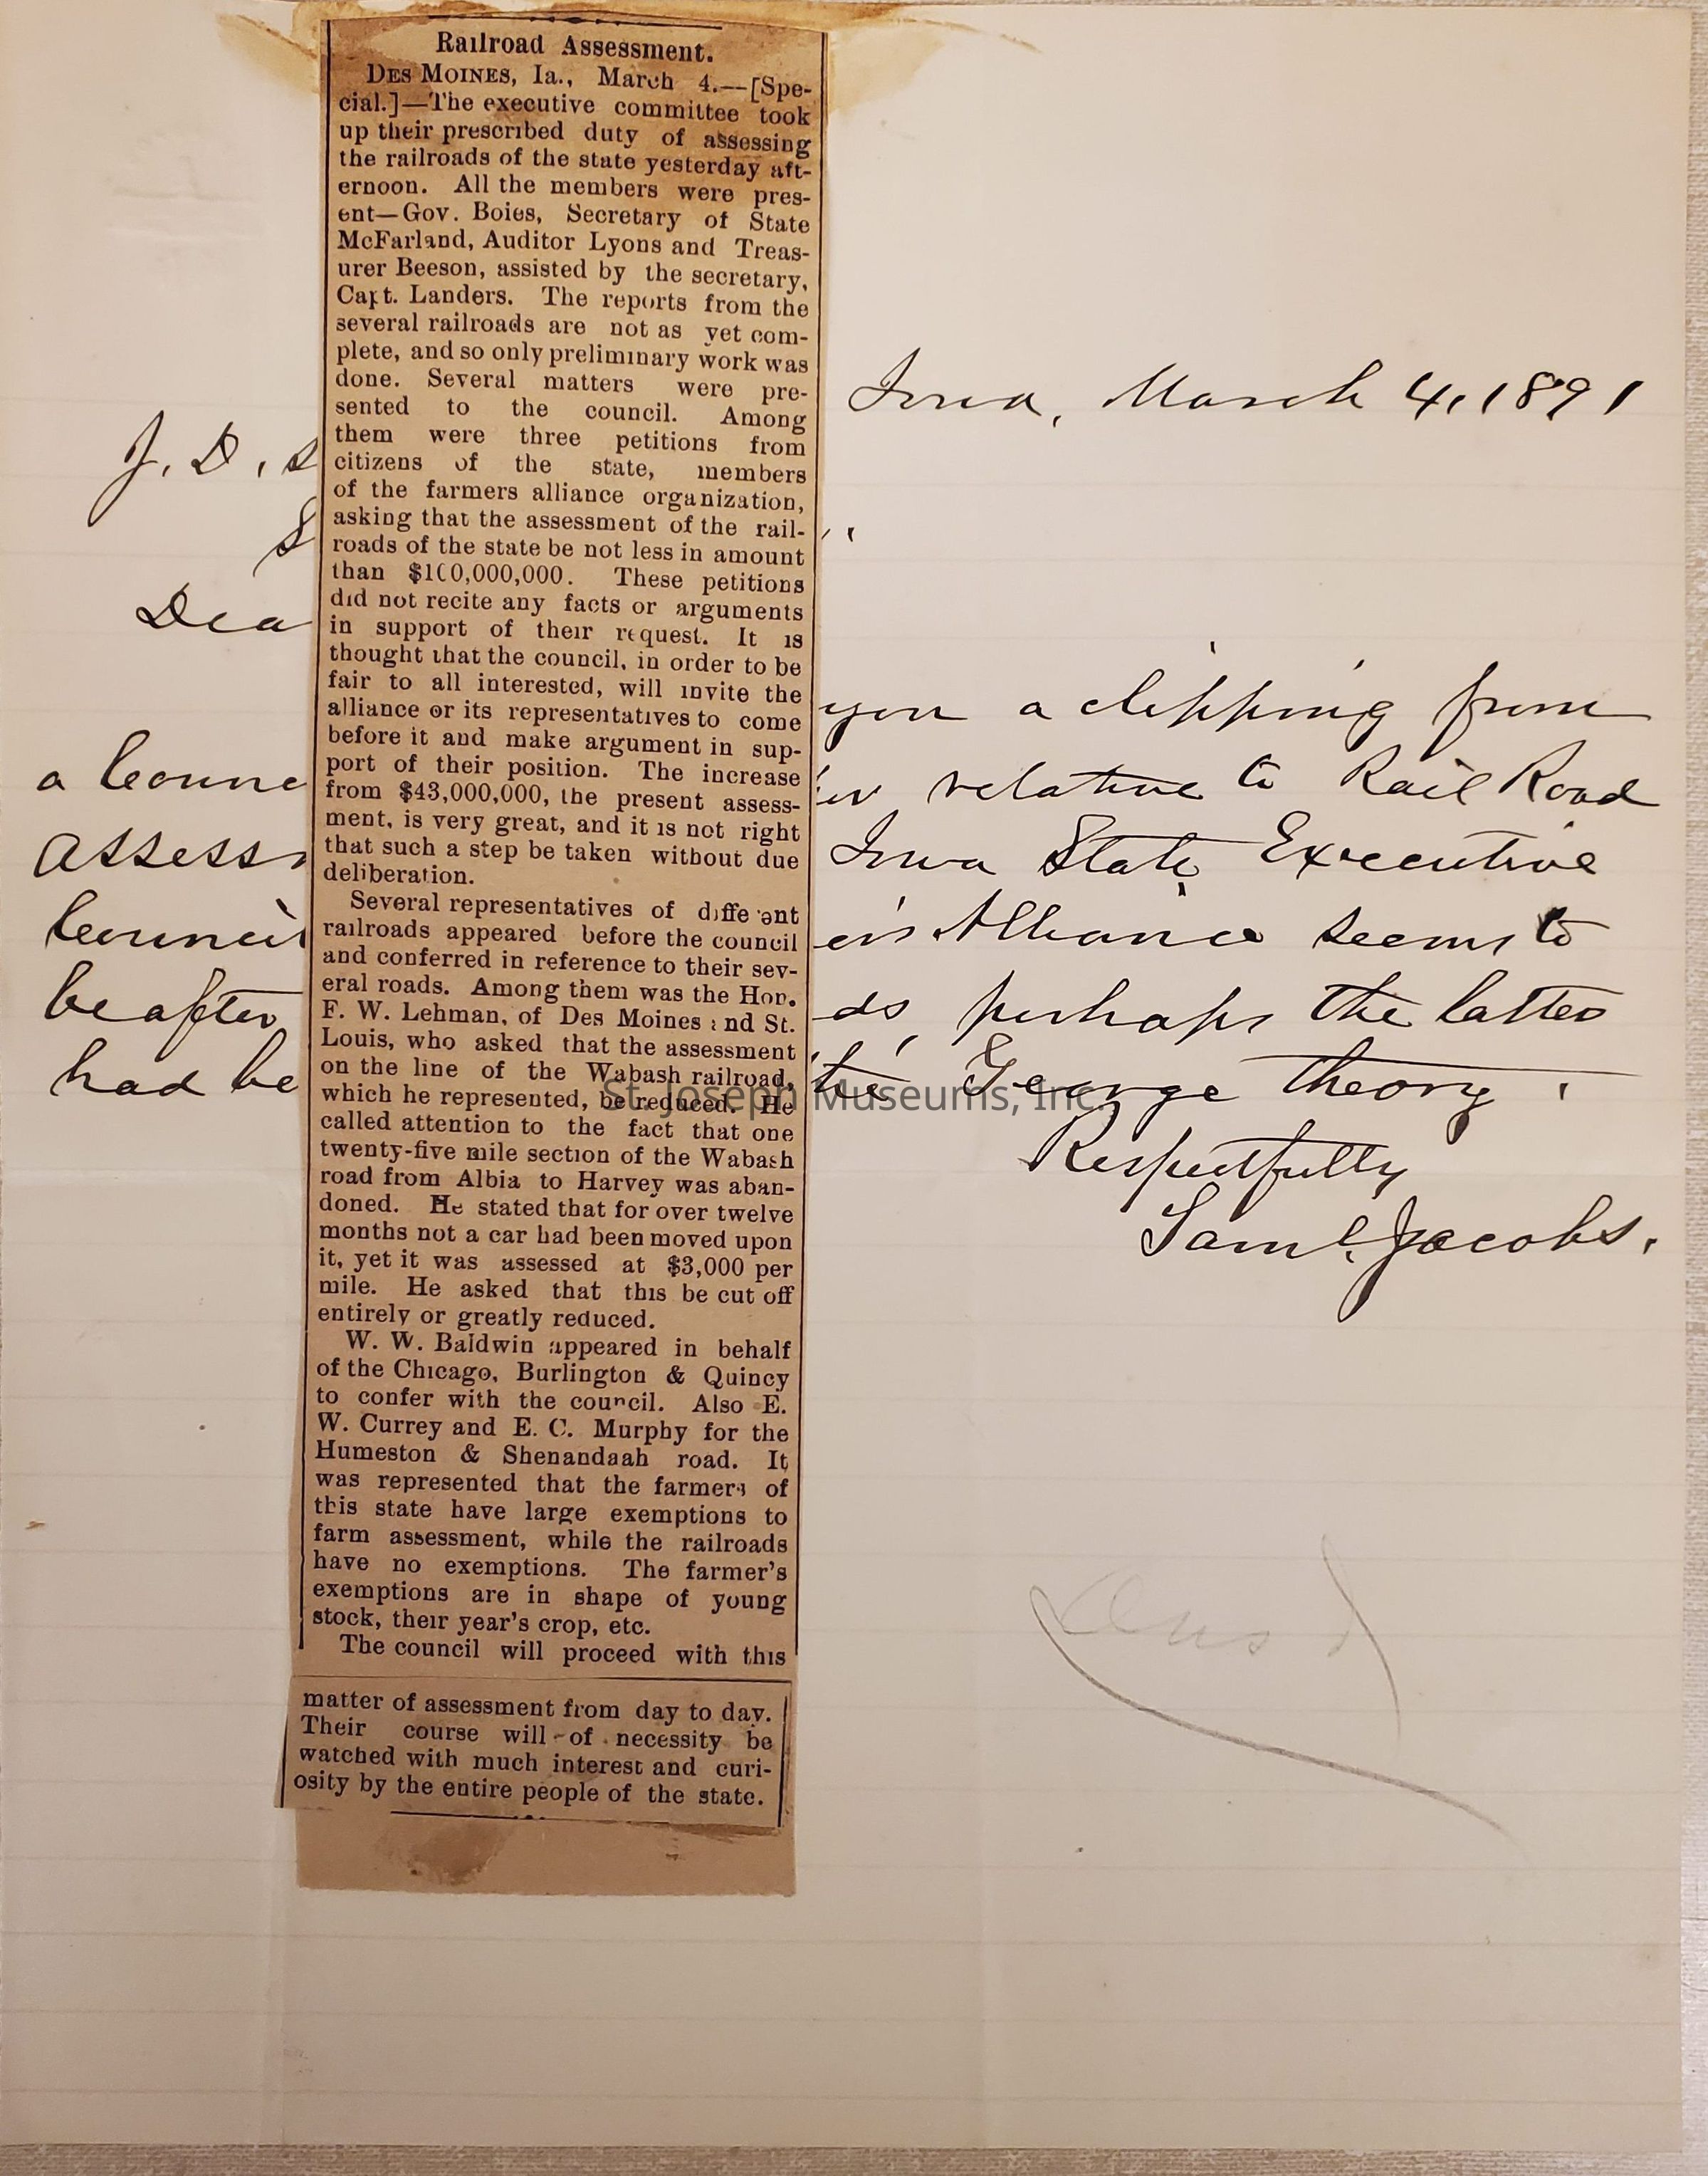 Railroad Assessment.
DES MOINES, Ia., March 4.—[Spe-
cial.]—The executive committee took
up their prescribed duty of assessing
the railroads of the state yesterday aft-
ernoon. All the members were pres-
ent—Gov. Boies, Secretary of State
McFarland, Auditor Lyons and Treas-
urer Beeson, assisted by the secretary,
Capt. Landers. The reports from the
several railroads are not as yet com-
plete, and so only preliminary work was
done. Several matters were pre-
sented to the council. Among
them were three petitions from
citizens of the state, members
of the farmers alliance organization,
asking that the assessment of the rail-
roads of the state be not less in amount
than $100,000,000. These petitions
did not recite any facts or arguments
in support of their request. It is
thought that the council, in order to be
fair to all interested, will invite the
alliance or its representatives to come
before it and make argument in sup-
port of their position. The increase
from $43,000,000, the present assess-
ment, is very great, and it is not right
that such a step be taken without due
deliberation.
Several representatives of different
railroads appeared before the council
and conferred in reference to their sev-
eral roads. Among them was the Hon.
F. W. Lehman, of Des Moines and St.
Louis, who asked that the assessment
on the line of the Wabash railroad,
which he represented, be reduced. He
called attention to the fact that one
twenty-five mile section of the Wabash
road from Albia to Harvey was aban-
doned. He stated that for over twelve
months not a car had been moved upon
it, yet it was assessed at $3,000 per
mile. He asked that this be cut off
entirely or greatly reduced.
W. W. Baldwin appeared in behalf
of the Chicago, Burlington & Quincy
to confer with the council. Also E.
W. Currey and E. C. Murphy for the
Humeston & Shenandaah road. It
was represented that the farmers of
this state have large exemptions to
farm assessment, while the railroads
have no exemptions. The farmer's
exemptions are in shape of young
stock, their year's crop, etc.
The council will proceed with this
matter of assessment from day to day.
Their course will of necessity be
watched with much interest and curi-
osity by the entire people of the state.
Iowa, March 4, 1891
J. D. S
S
Dea
you a clipping from
a Counc er relative to Rail Road
assess Iowa State Executive
Council er's Alliance seems to
be after ds, perhaps the latter
had be the George theory.
Respectfully
Saml. Jacobs.
St. Joseph Museums, Inc.